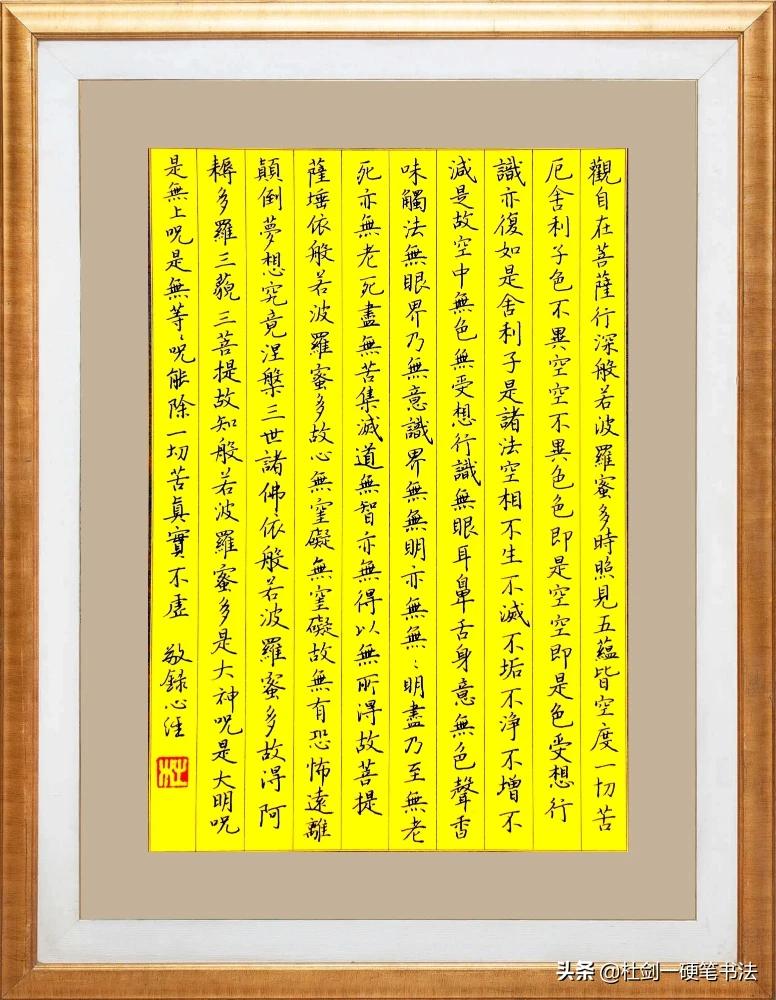 觀自在菩薩行深般若波羅蜜多時照見五蘊皆空度一切苦
厄舍利子色不異空空不異色色即是空空即是色受想行
識亦復如是舍利子是諸法空相不生不滅不垢不淨不增不
減是故空中無色無受想行識無眼耳鼻舌身意無色聲香
味觸法無眼界乃無意識界無無明亦無無〻明盡乃至無老
死亦無老死盡無苦集滅道無智亦無得以無所得故菩提
薩埵依般若波羅蜜多故心無罣礙無罣礙故無有恐怖遠離
顛倒夢想究竟涅槃三世諸佛依般若波羅蜜多故得阿
耨多羅三藐三菩提故知般若波羅蜜多是大神咒是大明咒
是無上咒是無等〻咒能除一切苦真實不虛 敬錄心經
杜
头条 @杜剑一硬笔书法